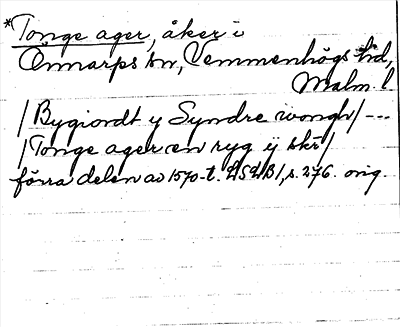 *Tonge ager, åker i
Önnarps sn, Vemmenhögs hd,
Malm. l.
/Bygiordt y Syndre wongh/ ---
/Tonge ager en ryg ÿ skr/
förra delen av 1570-t. LSLB1, s. 276. orig.